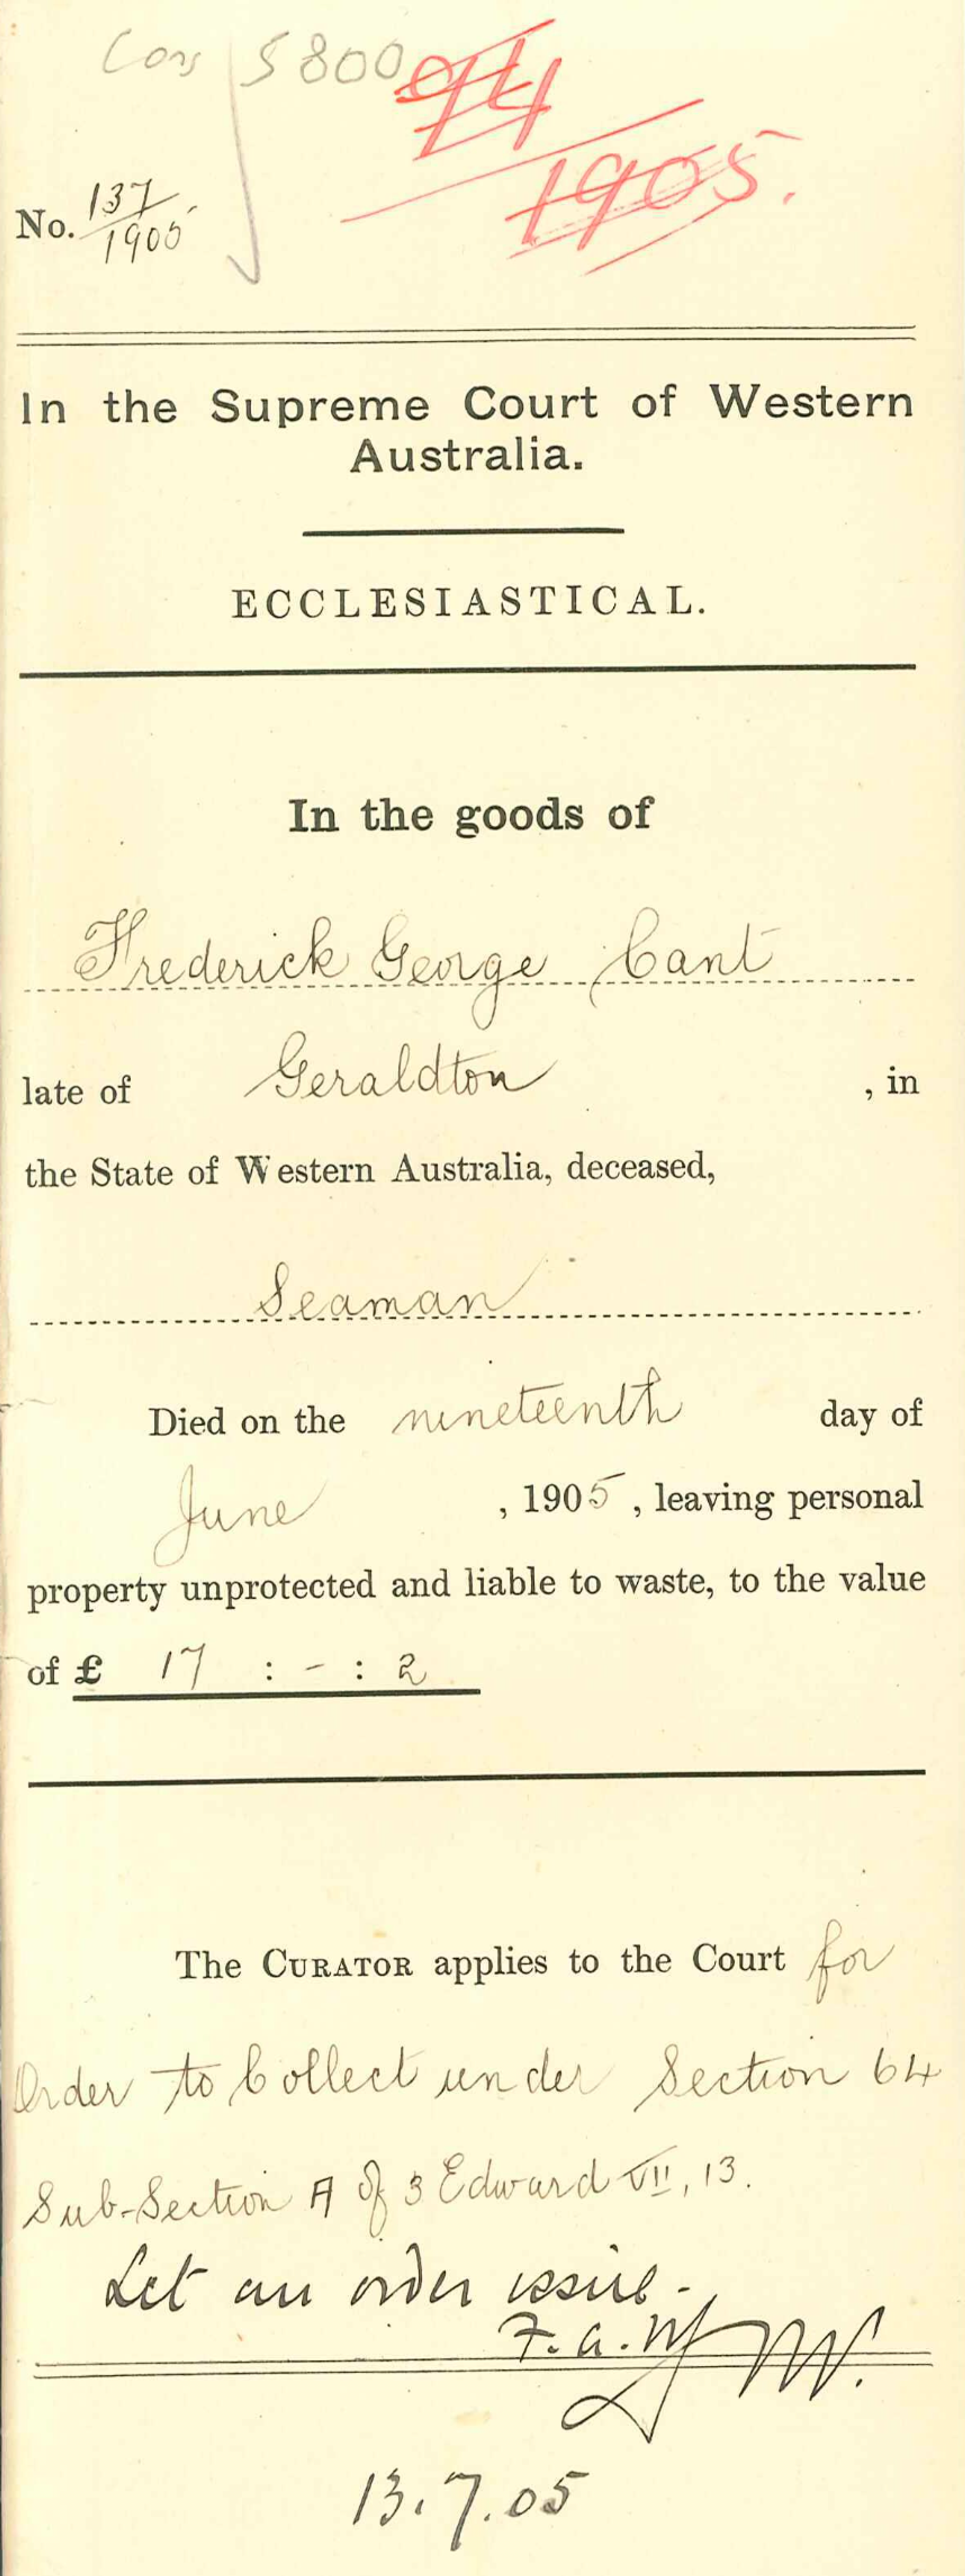 Cons 5800
94
1905.
No. 137
1905
In the Supreme Court of Western
Australia.
ECCLESIASTICAL.
In the goods of
Frederick George Cant
late of Geraldton , in
the State of Western Australia, deceased,
Seaman
Died on the nineteenth day of
June , 1905 , leaving personal
property unprotected and liable to waste, to the value
of £ 17 : - : 2
The CURATOR applies to the Court for
Order to Collect under Section 64
Sub-Section A of 3 Edward VII, 13.
Let an order issue -
F. A. M
13.7.05